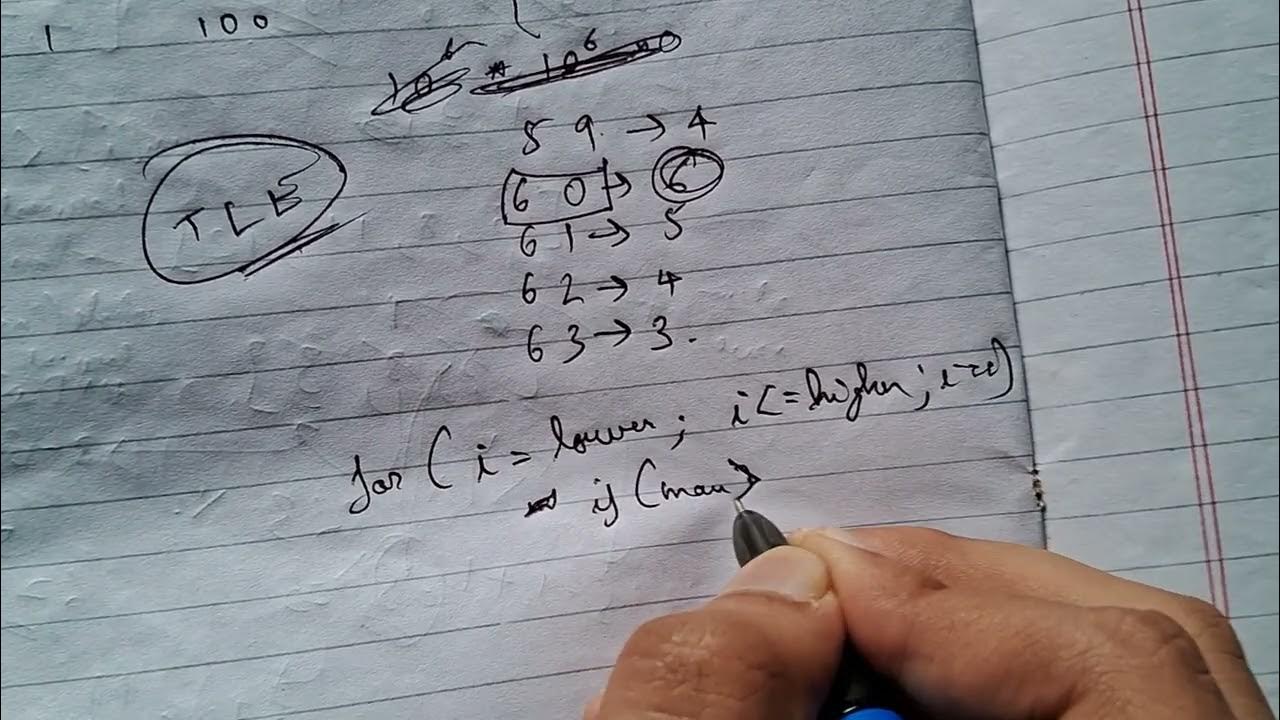 1 100
10^6 * 10^6
59 → 4
TLE
60 → 6
61 → 5
62 → 4
63 → 3.
for ( i = lower; i<=higher; i++)
if (max